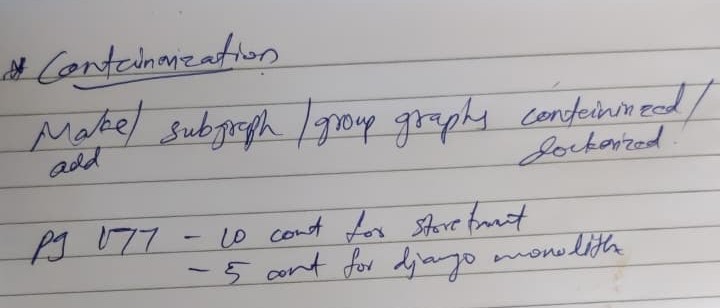 * Containarization
Make/ subgraph / group graphs containinzed /
add dockerized.
pg 177 - 10 cont for store front
- 5 cont for django monolith